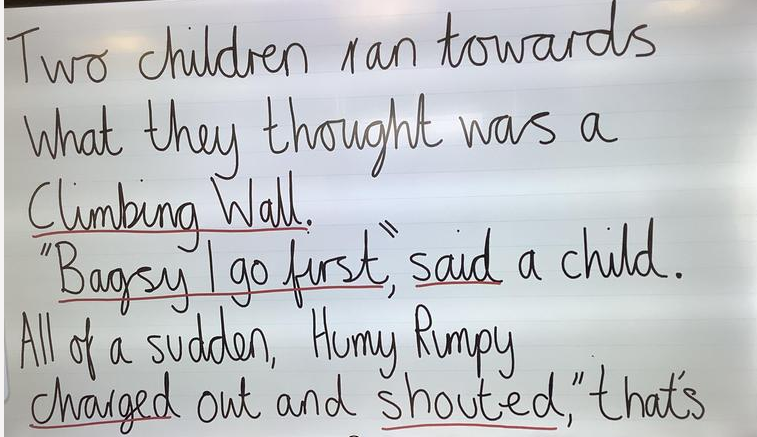 Two children ran towards
What they thought was a
Climbing Wall.
"Bagsy I go first," said a child.
All of a sudden, Humy Rumpy
charged out and shouted, "that's